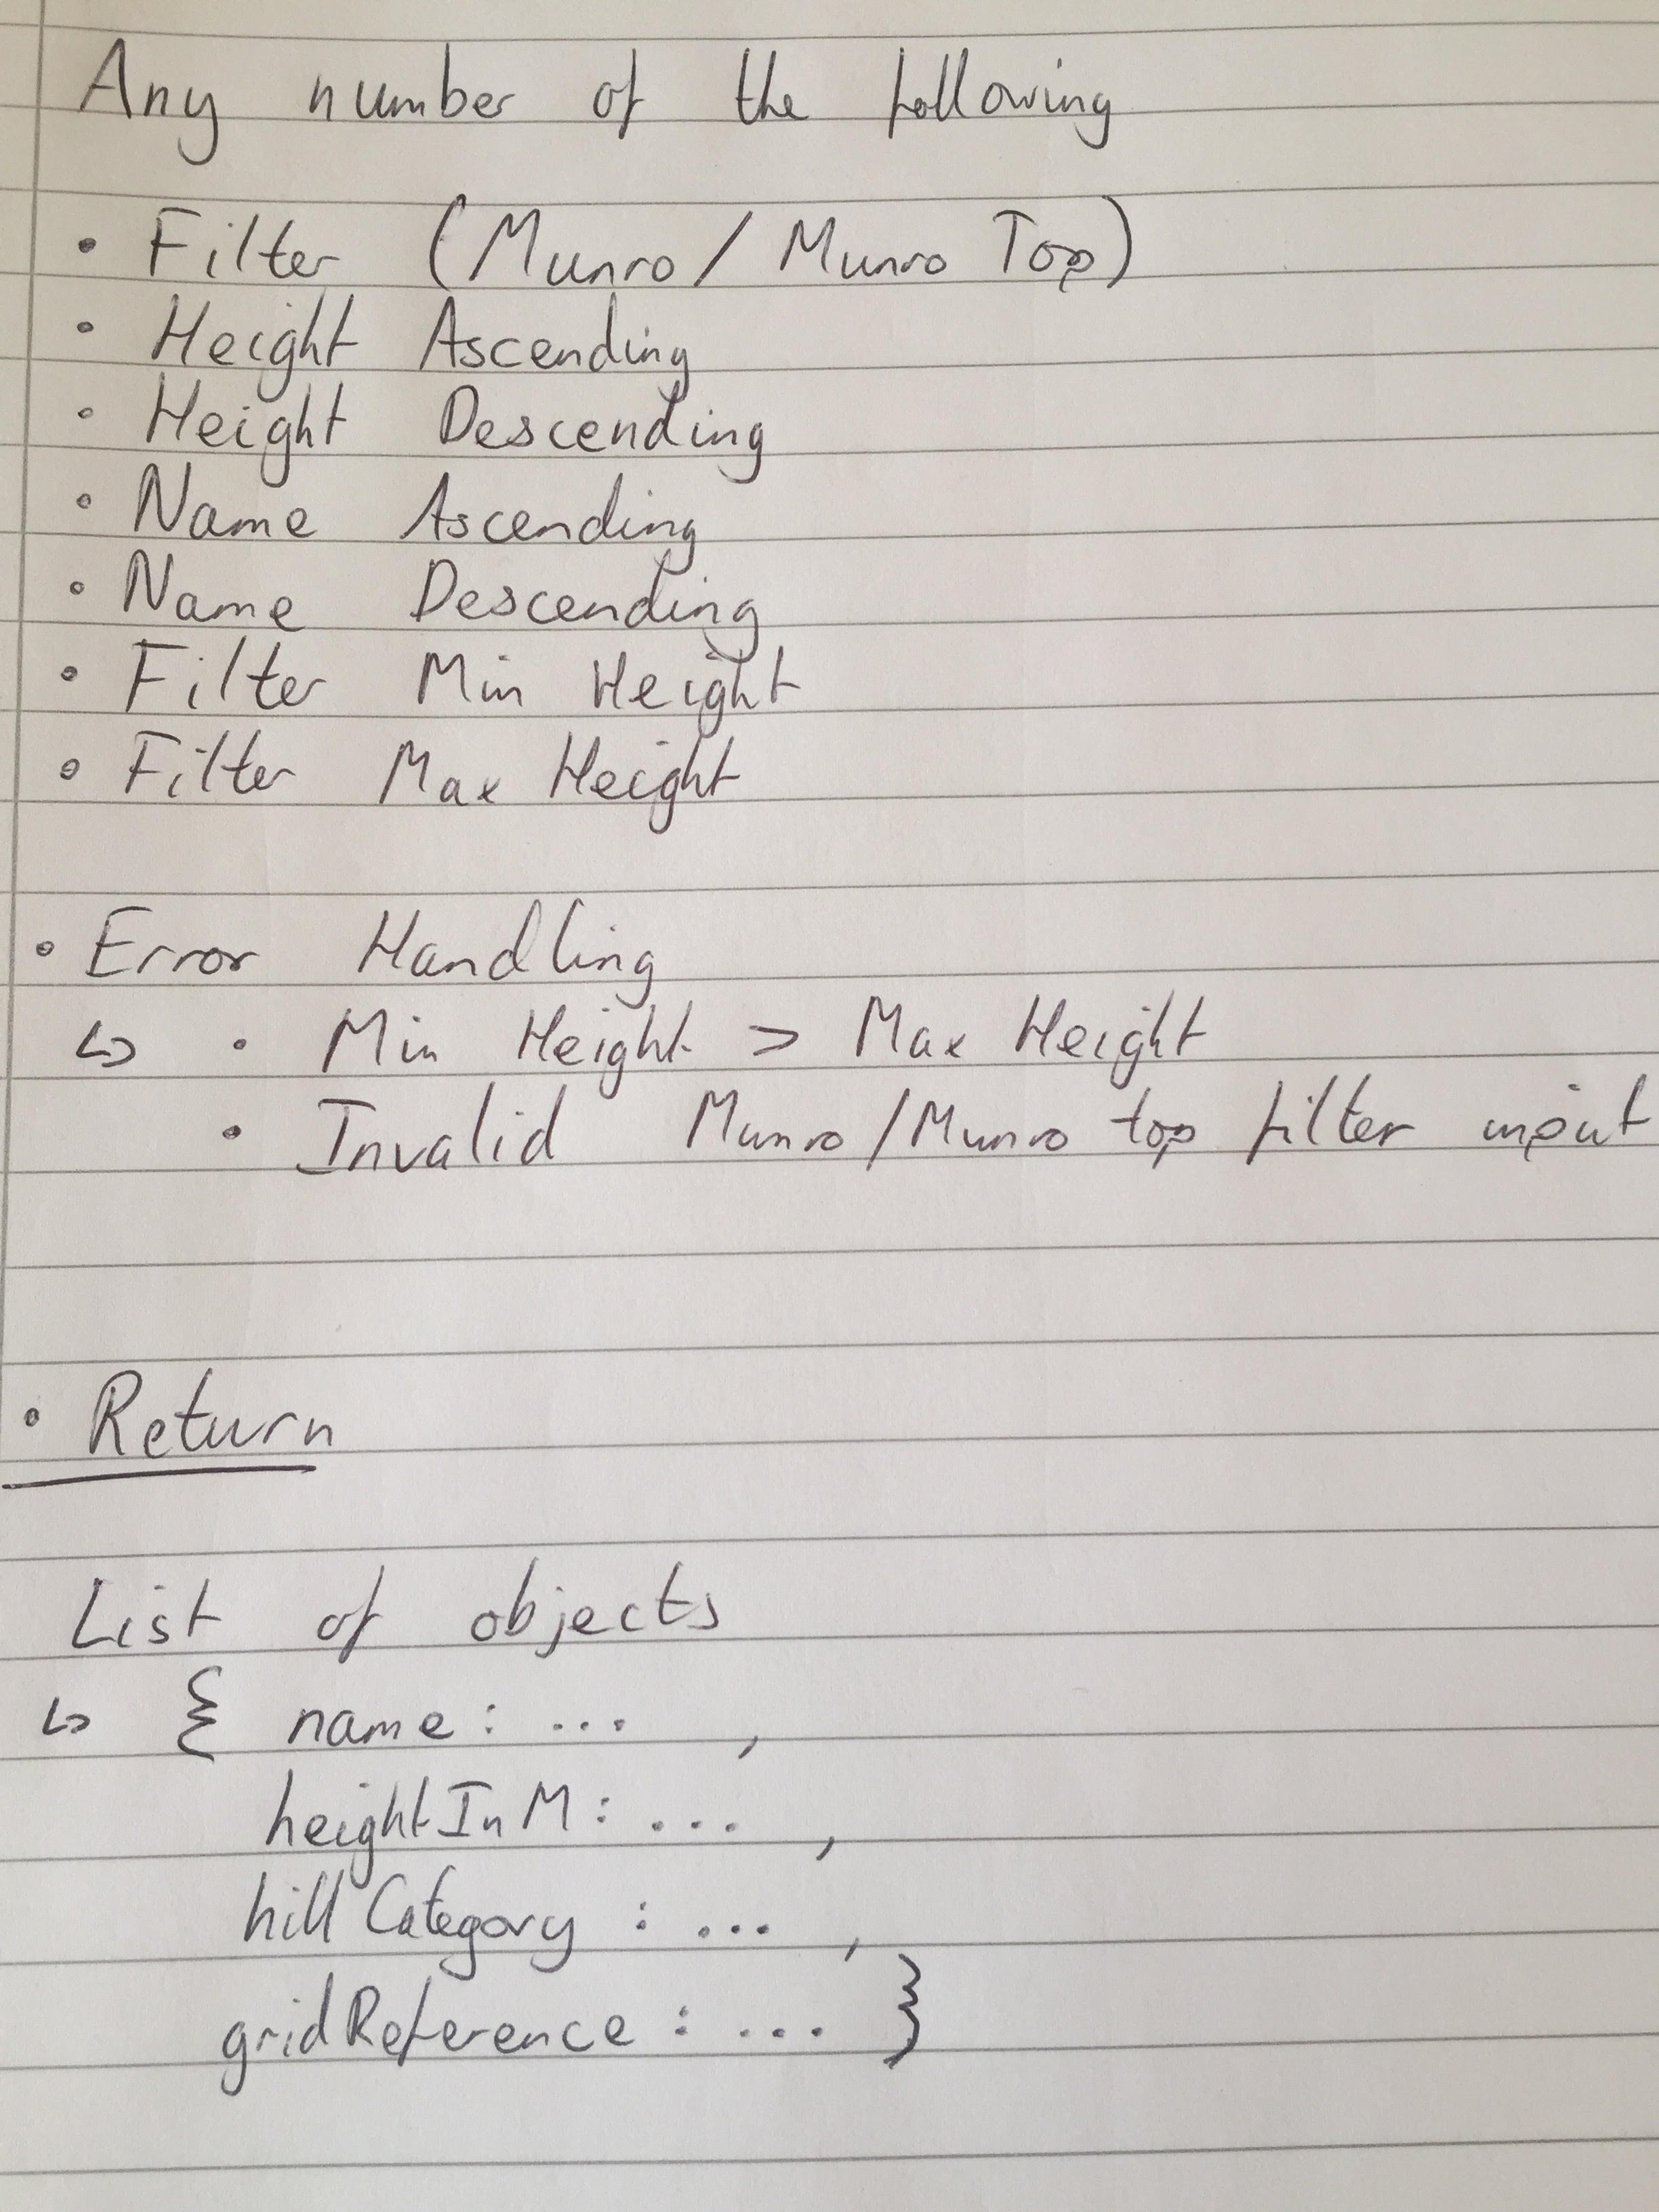 Any number of the following
• Filter (Munro / Munro Top)
• Height Ascending
• Height Descending
• Name Ascending
• Name Descending
• Filter Min Height
• Filter Max Height
• Error Handling
↳ • Min Height > Max Height
• Invalid Munro/Munro top filter input
• Return
List of objects
↳ { name: ... ,
heightInM: ... ,
hillCategory : ... ,
gridReference : ... }